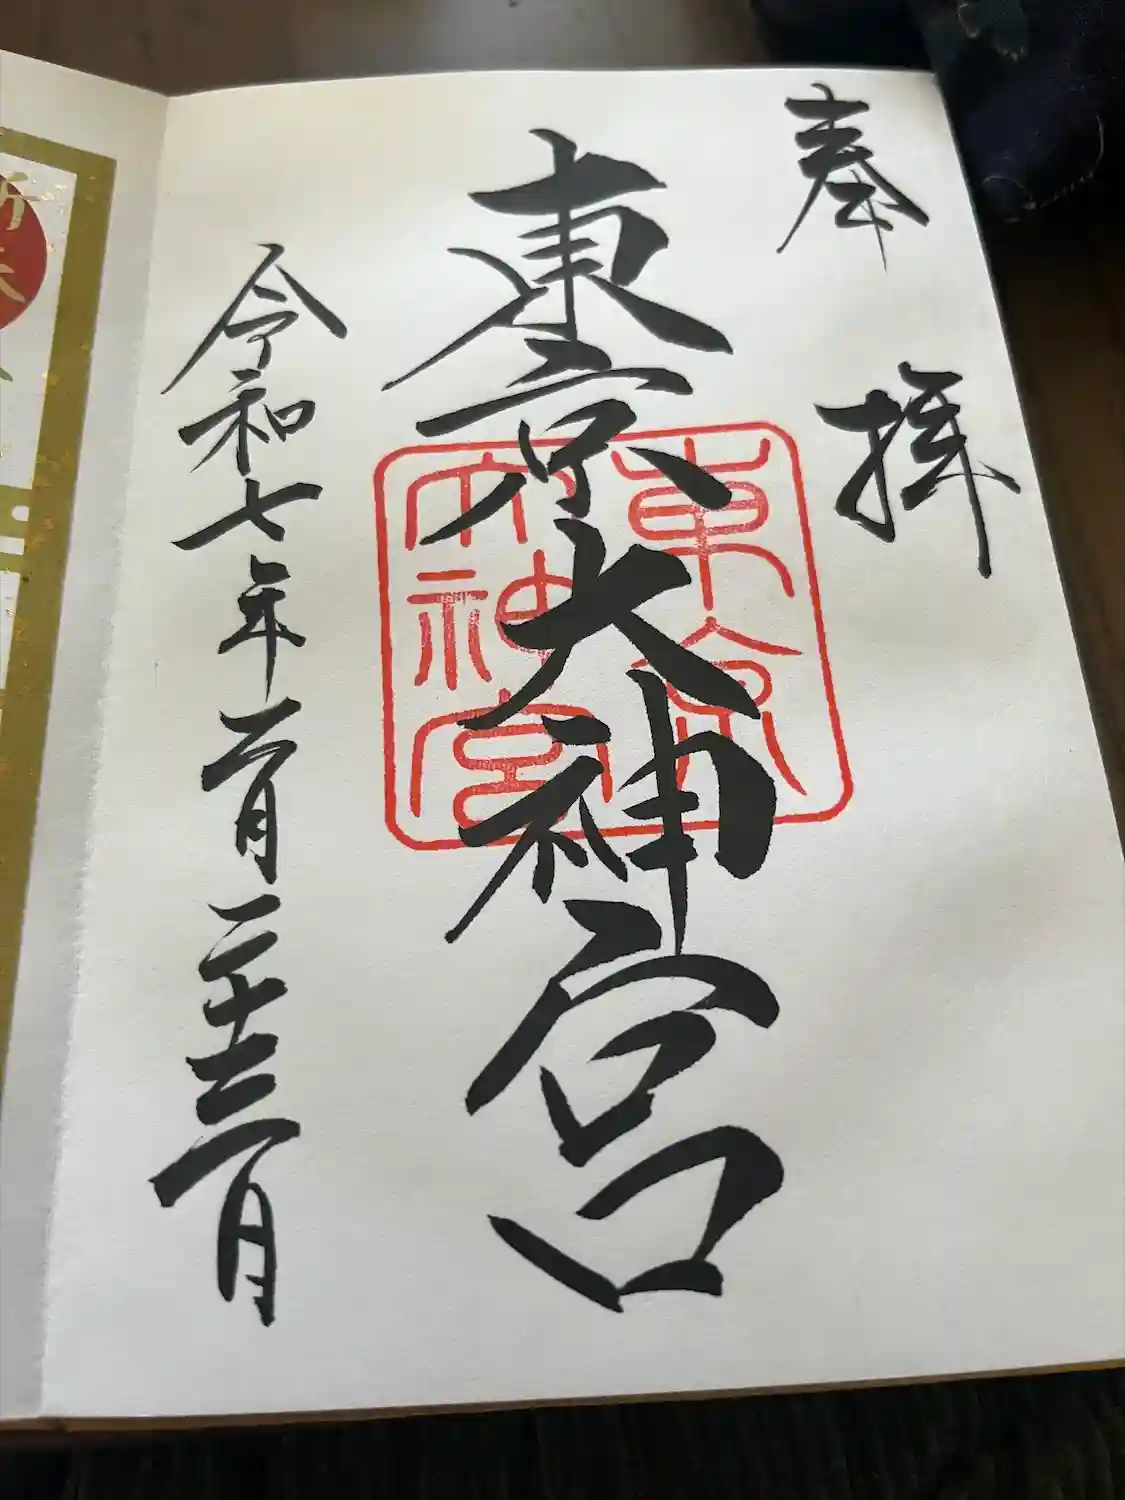 奉拝
東京大神宮
令和七年一月二十三日
東京
大神宮